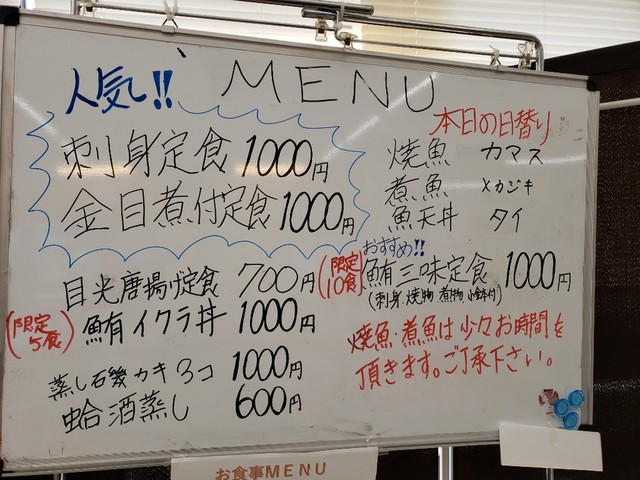 MENU
人気!!
刺身定食 1000円
金目煮付定食 1000円
目光唐揚げ定食 700円
(限定5食)
鮪イクラ丼 1000円
蒸し石幾カキ3コ 1000円
蛤酒蒸し 600円
本日の日替り
焼魚 カマス
煮魚 メカジキ
魚天丼 タイ
おすすめ!!
(限定10食)
鮪三味定食 1000円
(刺身、焼物、煮物、小鉢付)
焼魚・煮魚は少々お時間を
頂きます。ご了承下さい。
お食事MENU